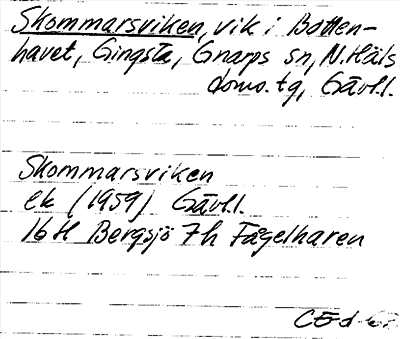 Skommarsviken, vik i Botten-
havet, Gingsta, Gnarps sn, N. Häls
doms. tg, Gävl.l.
Skommarsviken
ek (1959) Gävl.l.
16 H Bergsjö 7h Fågelharen